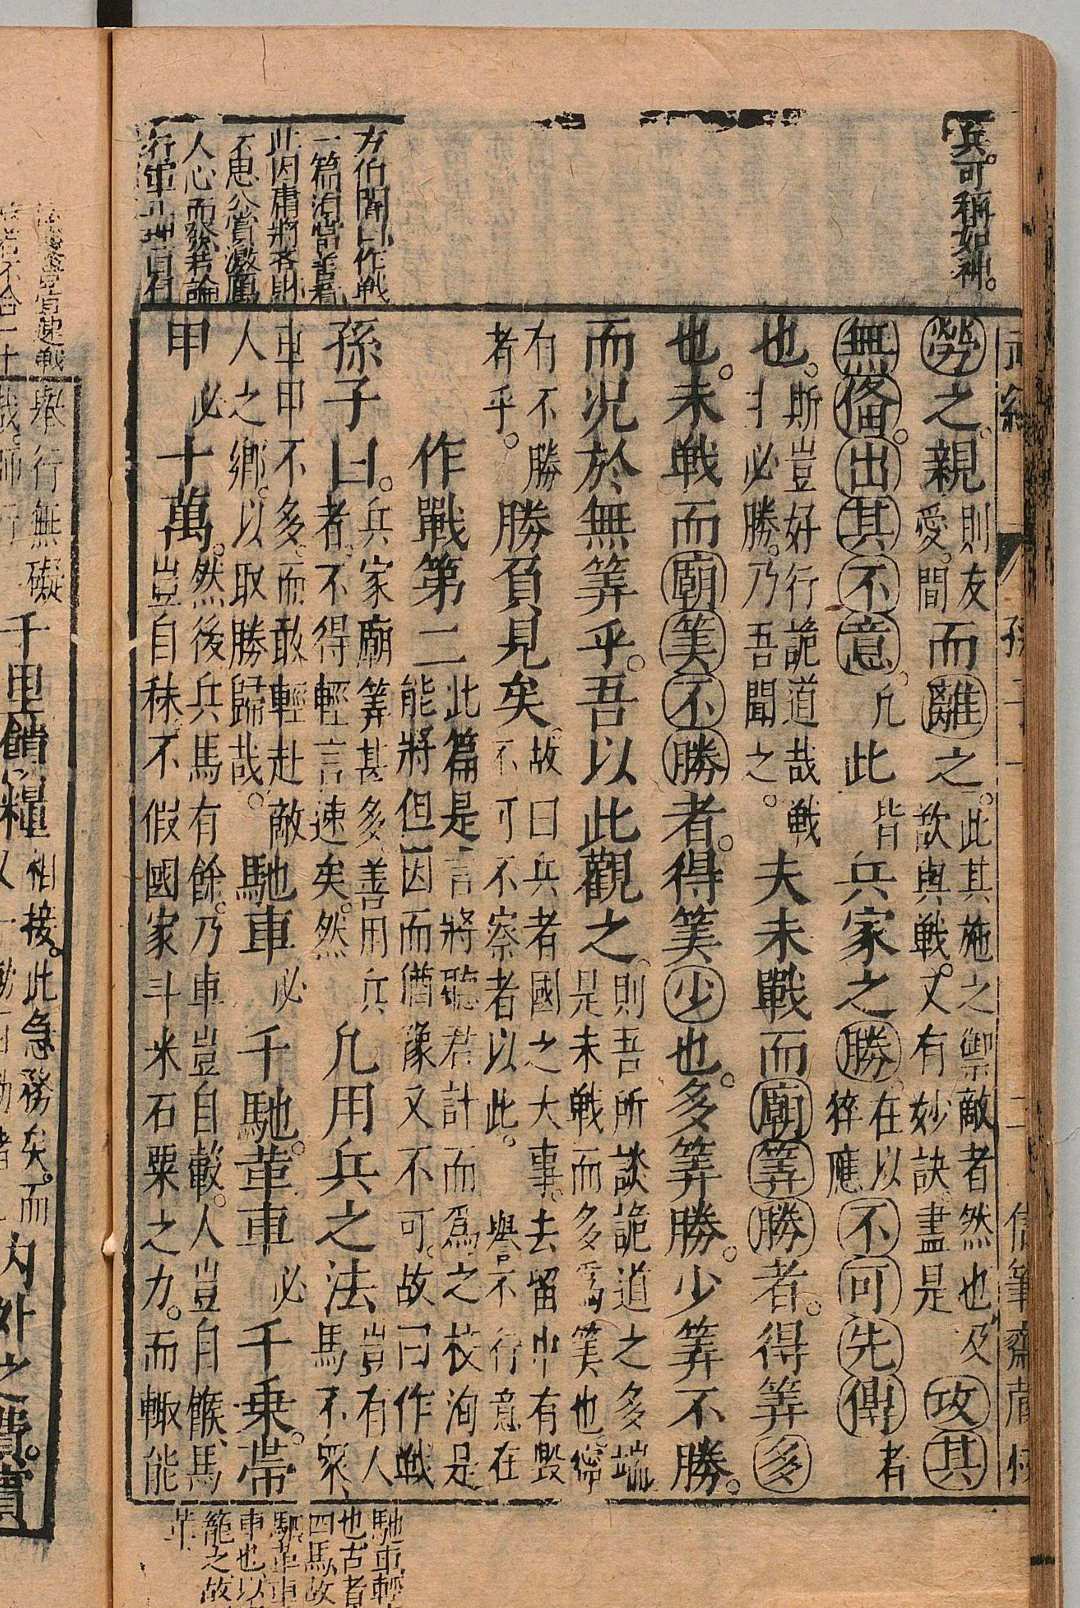 兵。可稱如神。
勞之。親則友愛。間而離之。此其施之禦敵者然也及歒與戰。又有妙訣盡是攻其
無俻。出其不意。凢此皆兵家之勝。在以猝應不可先傳者
也。斯豈好行詭道哉戰必勝。乃吾聞之。夫未戰而廟筭勝者。得筭多
也。未戰而廟筭不勝者。得筭少也。多筭勝。少筭不勝。
而况於無筭乎。吾以此觀之。則吾所談詭道之多端是未戰而多爲筭也。
有不勝者乎。勝負見矣。故曰兵者國之大事。去留中有毀譽不行意在不可不察者以此。
作戰第二此篇是言將聽君計而爲之校洵是能將但因而猶豫又不可。故曰作戰
孫子曰。兵家廟筭甚多善用兵者。不得輕言速矣。然凢用兵之法豈有人馬不衆、
車甲不多。而敢輕赴敵人之鄉。以取勝歸哉。馳車必千駟。革車必千乗。帶
甲必十萬。然後兵馬有餘。乃車豈自載。人豈自餱、馬豈自秣。不假國家斗米石粟之力。而輙能
方伯闇曰作戰
一篇
此因
不思
人心而發若論
行軍
馳車輕
也古者
四馬故
駟革車
車也以
籠之故
革
千里饋糧相接。此急務矣。而内外之費。賓
舉行無礙